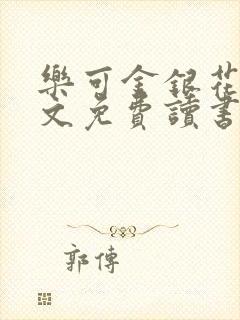 樂可金銀花
文免費讀書
郭傳